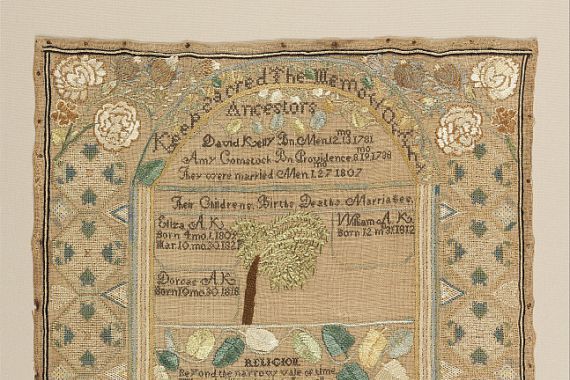 Keep sacred The Memory Of Our
Ancestors
David Kelly Bn. Men.12.mo13.1781
Amy Comstock Bn. Providence.8.mo19.1788
They were married Men.1.mo27 1807
Their Childrens, Births, Deaths, Marriages.
Eliza A. K.
Born 4.mo.1.1809
Mar.10.mo.30.1827
William A. K.
Born 12.m31.1812
Dorcas A. K.
Born 10.mo.30.1818
RELIGION
Beyond the narrow vale of time